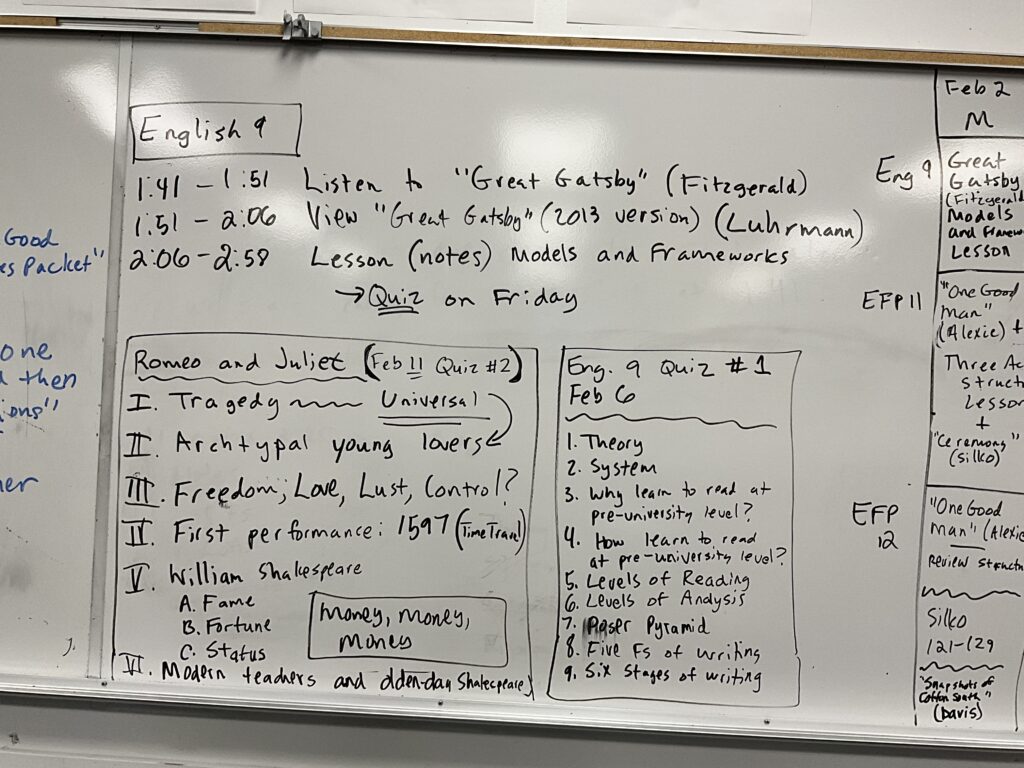 Good
es Packet"
one
then
ions"
English 9
1:41 - 1:51 Listen to "Great Gatsby" (Fitzgerald)
1:51 - 2:06 View "Great Gatsby" (2013 version) (Luhrmann)
2:06 - 2:58 Lesson (notes) Models and Frameworks
→ Quiz on Friday
Romeo and Juliet (Feb 11 Quiz #2)
I. Tragedy Universal
II. Archtypal young lovers
III. Freedom, Love, Lust, Control?
II. First performance: 1597 (Time Travel)
V. William Shakespeare
A. Fame
B. Fortune
C. Status
Money, money,
money
VI. Modern teachers and olden-day Shakespeare
Eng. 9 Quiz #1
Feb 6
1. Theory
2. System
3. Why learn to read at
pre-university level?
4. How learn to read
at pre-university level?
5. Levels of Reading
6. Levels of Analysis
7. Pyramid
8. Five Fs of writing
9. Six stages of writing
Feb 2
M
Eng 9
Great
Gatsby
(Fitzgerald
Models
and Framew
Lesson
EFP 11
"One Good
Man"
(Alexic) +
Three Ac
Struct
Lesso
+
"Ceremony"
(Silko)
EFP
12
"One Good
Man" (Alexic
Review Struct
Silko
121-129
"Snapshots of
Cotton South"
(Davis)